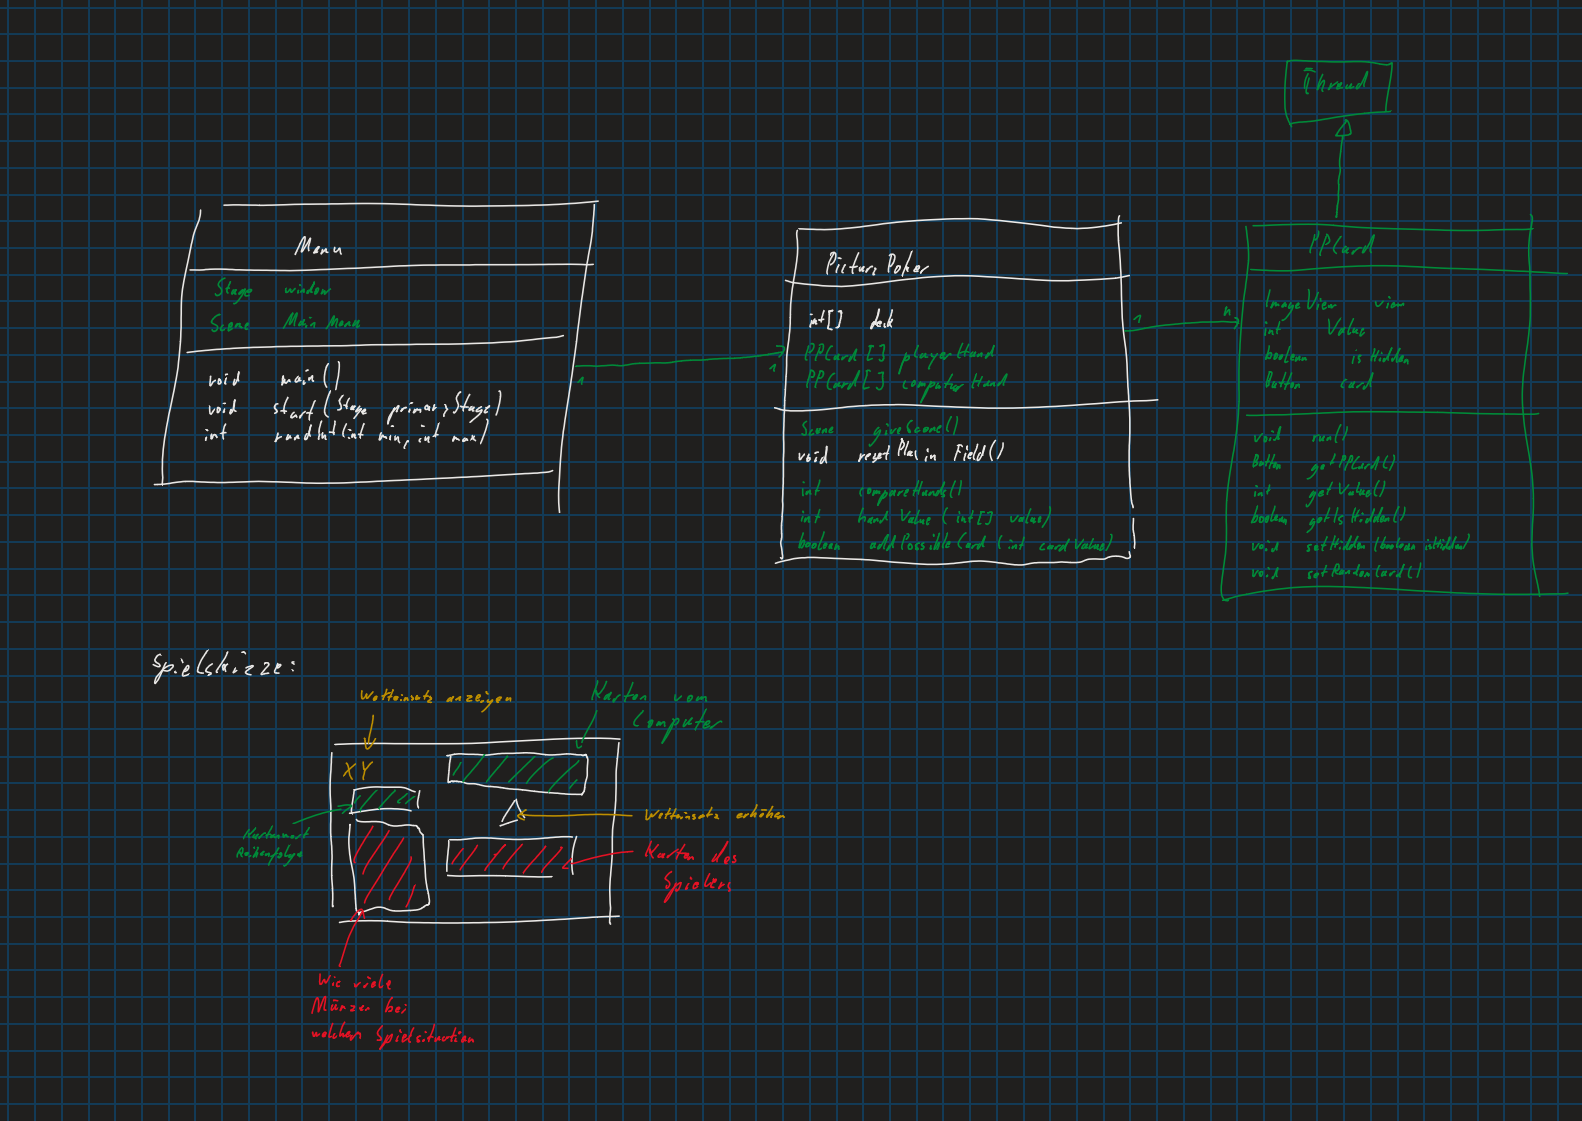 Thread
Menu
Stage window
Scene Main Menu
void main()
void start(Stage primaryStage)
int randInt(int min, int max)
1
1
Picture Poker
int[] deck
PPCard[] playerHand
PPCard[] computerHand
Scene giveScene()
void reset Field()
int compareHands()
int hand Value (int[] value)
boolean addPossibleCard (int cardValue)
1
n
PPCard
ImageView view
int Value
boolean isHidden
Button card
void run()
Button getPPCard()
int getValue()
boolean getIsHidden()
void setHidden (boolean isHidden)
void setRandomCard()
Spielskizze:
Wetteinsatz anzeigen
Karten vom
Computer
XY
Wetteinsatz erhöhen
Kartenwert
Reihenfolge
Karten des
Spielers
Wie viele
Münzen bei
welchen Spielsituation